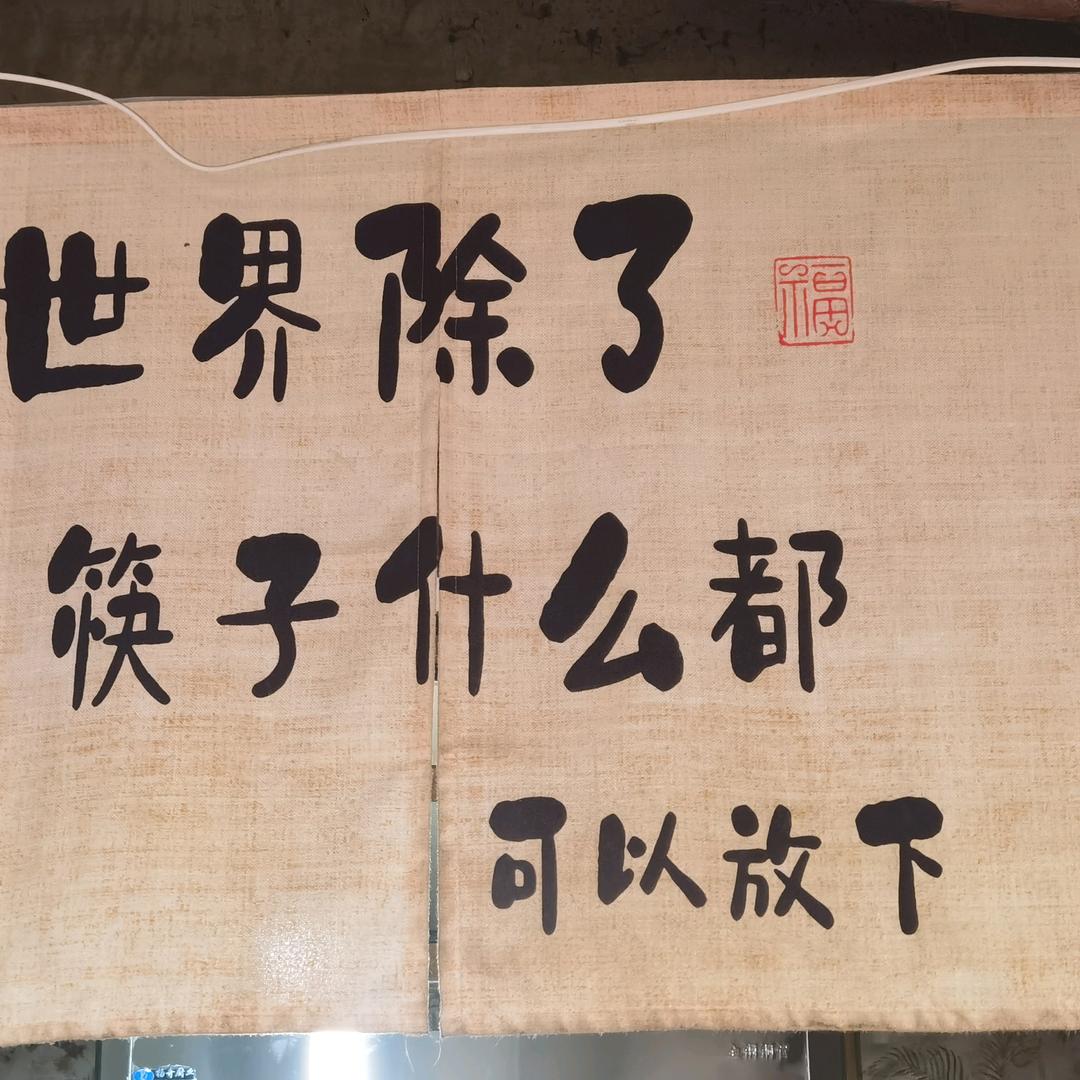 世界除了
福
筷子什么都
可以放下